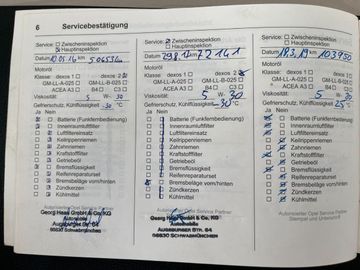 6 Servicebestätigung
Service: Zwischeninspektion
Hauptinspektion
Datum 12.05.14 km 50653km
Motoröl
Klasse: dexos 1 dexos 2
GM-LL-A-025 GM-LL-B-025
ACEA A3 B4 C3
Viskosität: 5 W- 30
Gefrierschutz, Kühlflüssigkeit -30 °C
Ja Nein
Batterie (Funkfernbedienung)
Innenraumluftfilter
Luftfiltereinsatz
Keilrippenriemen
Zahnriemen
Kraftstofffilter
Getriebeöl
Bremsflüssigkeit
Reifenreparaturset
Bremsbeläge vorn/hinten
Zündkerzen
Kühlmittel
Georg Haas GmbH & Co. KG
Automobile
Augsburger Str. 64
86830 Schwabmünchen
Service: Zwischeninspektion
Hauptinspektion
Datum km 72141
Motoröl
Klasse: dexos 1 dexos 2
GM-LL-A-025 GM-LL-B-025
ACEA A3 B4 C3
Viskosität: 5 W- 30
Gefrierschutz, Kühlflüssigkeit -30 °C
Ja Nein
Batterie (Funkfernbedienung)
Innenraumluftfilter
Luftfiltereinsatz
Keilrippenriemen
Zahnriemen
Kraftstofffilter
Getriebeöl
Bremsflüssigkeit
Reifenreparaturset
Bremsbeläge vorn/hinten
Zündkerzen
Kühlmittel
Autorisierter Opel Service Partner
Georg Haas GmbH & Co. KG
Automobile
Augsburger Str. 64
86830 Schwabmünchen
Service: Zwischeninspektion
Hauptinspektion
Datum 18.3.19 km 103950
Motoröl
Klasse: dexos 1 dexos 2
GM-LL-A-025 GM-LL-B-025
ACEA A3 B4 C3
Viskosität: 5 W- 30
Gefrierschutz, Kühlflüssigkeit 25 °C
Ja Nein
Batterie (Funkfernbedienung)
Innenraumluftfilter
Luftfiltereinsatz
Keilrippenriemen
Zahnriemen
Kraftstofffilter
Getriebeöl
Bremsflüssigkeit
Reifenreparaturset
Bremsbeläge vorn/hinten
Zündkerzen
Kühlmittel
Autorisierter Opel Service Partner
Stempel und Unterschrift